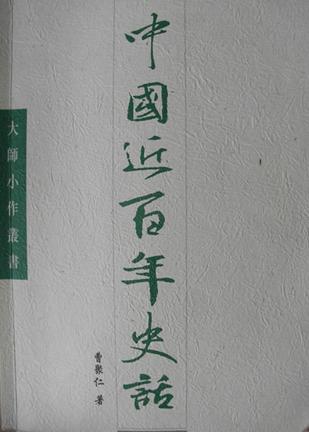 中國近百年史話
大師小作叢書
曹聚仁 著